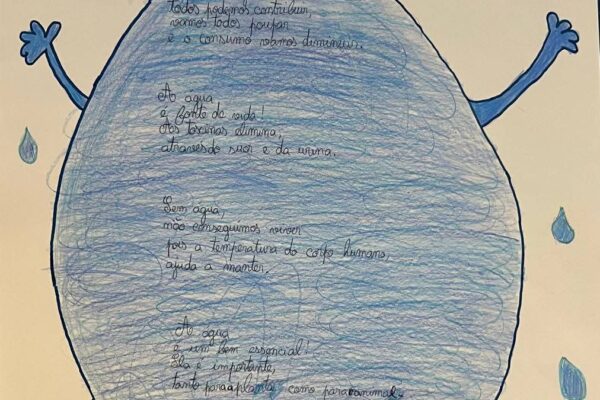 todos podemos contribuir,
vamos todos poupar
e o consumo vamos diminuir.
A água
é fonte de vida!
As toxinas elimina,
através do suor e da urina.
Sem água,
não conseguimos viver
pois a temperatura do corpo humano,
ajuda a manter.
A água
é um bem essencial!
Ela é importante,
tanto para a planta, como para o animal.